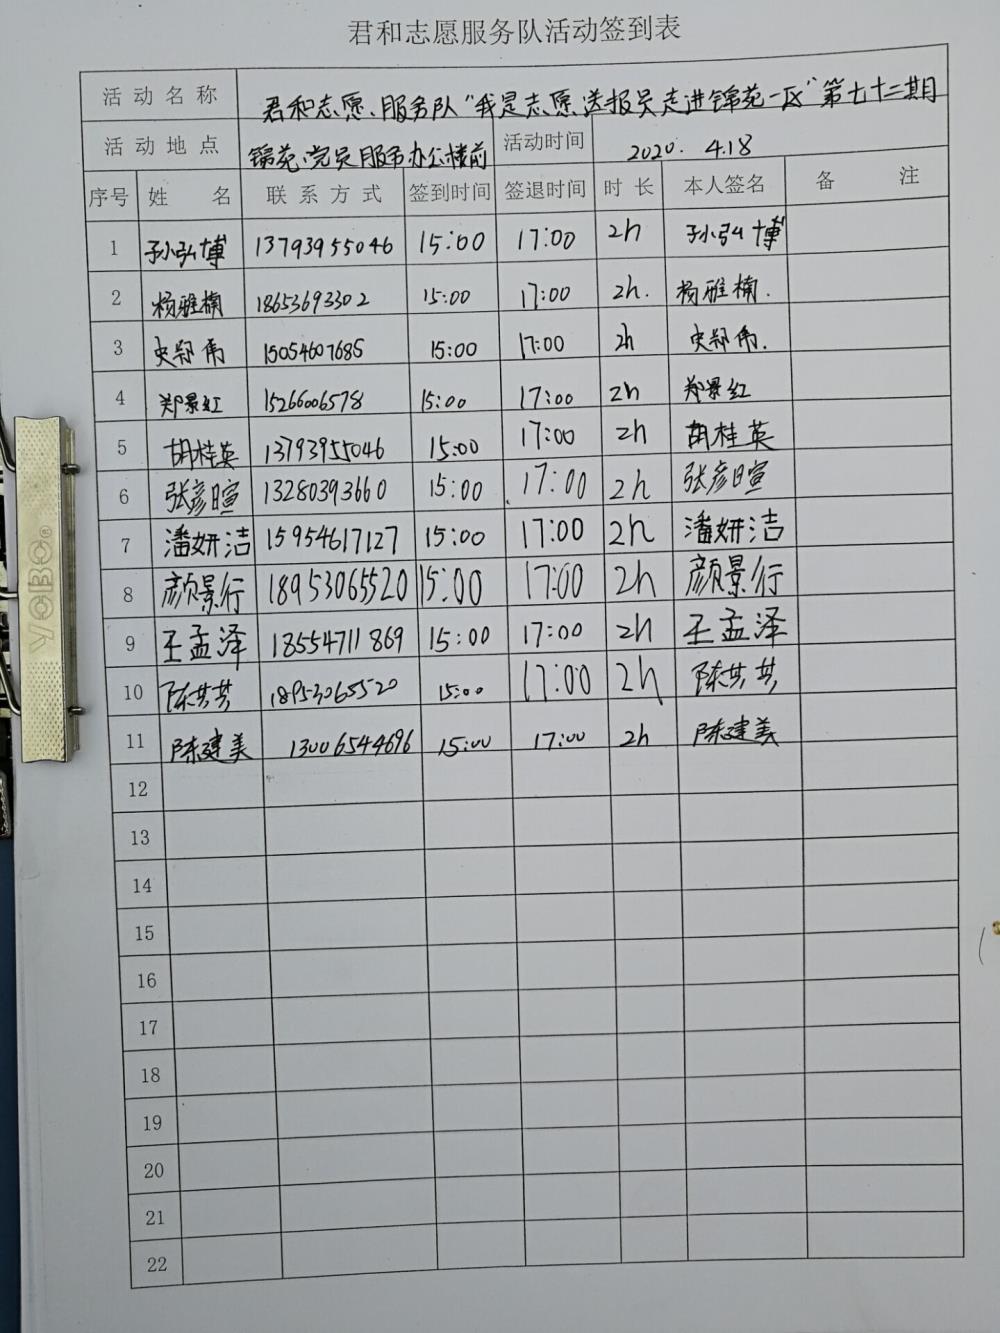 君和志愿服务队活动签到表
活动名称 君和志愿服务队"我是志愿送报员走进锦苑一区"第七十三期
活动地点 锦苑党员服务办公楼前 活动时间 2020. 4.18
序号 姓名 联系方式 签到时间 签退时间 时长 本人签名 备注
1 孙弘博 13793955046 15:00 17:00 2h 孙弘博
2 杨雅楠 18653693302 15:00 17:00 2h. 杨雅楠.
3 史郑伟 15054607685 15:00 17:00 2h 史郑伟.
4 郑景红 15266006578 15:00 17:00 2h 郑景红
5 胡桂英 13793955046 15:00 17:00 2h 胡桂英
6 张彦暄 13280393660 15:00 17:00 2h 张彦暄
7 潘妍洁 15954617127 15:00 17:00 2h 潘妍洁
8 颜景行 18953065520 15:00 17:00 2h 颜景行
9 王孟泽 13554711869 15:00 17:00 2h 王孟泽
10 陈芸芸 18953065520 15:00 17:00 2h 陈芸芸
11 陈建美 13006544696 15:00 17:00 2h 陈建美
12
13
14
15
16
17
18
19
20
21
22